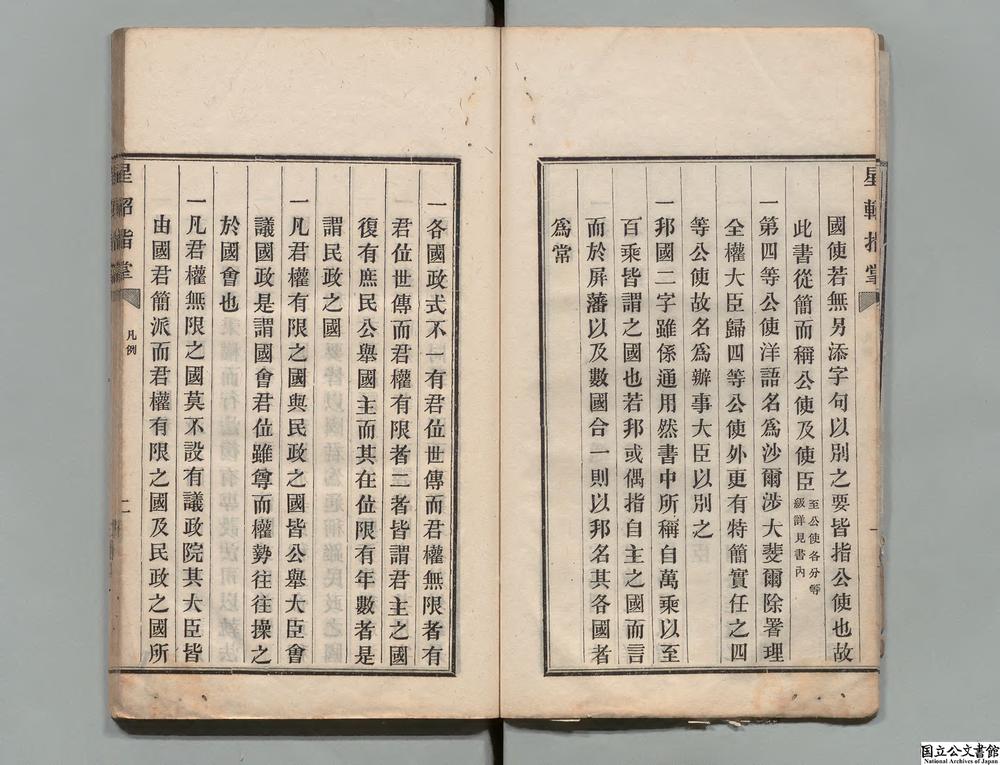 星軺指掌
國使若無另添字句以別之要皆指公使也故
此書從簡而稱公使及使臣至公使各分等
級詳見書內
一第四等公使洋語名爲沙爾涉大斐爾除署理
全權大臣歸四等公使外更有特簡實任之四
等公使故名爲辦事大臣以別之
一邦國二字雖係通用然書中所稱自萬乘以至
百乘皆謂之國也若邦或偶指自主之國而言
而於屏藩以及數國合一則以邦名其各國者
爲常
一各國政式不一有君位世傳而君權無限者有
君位世傳而君權有限者二者皆謂君主之國
復有庶民公舉國主而其在位限有年數者是
謂民政之國
一凡君權有限之國與民政之國皆公舉大臣會
議國政是謂國會君位雖尊而權勢往往操之
於國會也
一凡君權無限之國莫不設有議政院其大臣皆
由國君簡派而君權有限之國及民政之國所
星軺指掌
凡例
二
国立公文書館
National Archives of Japan